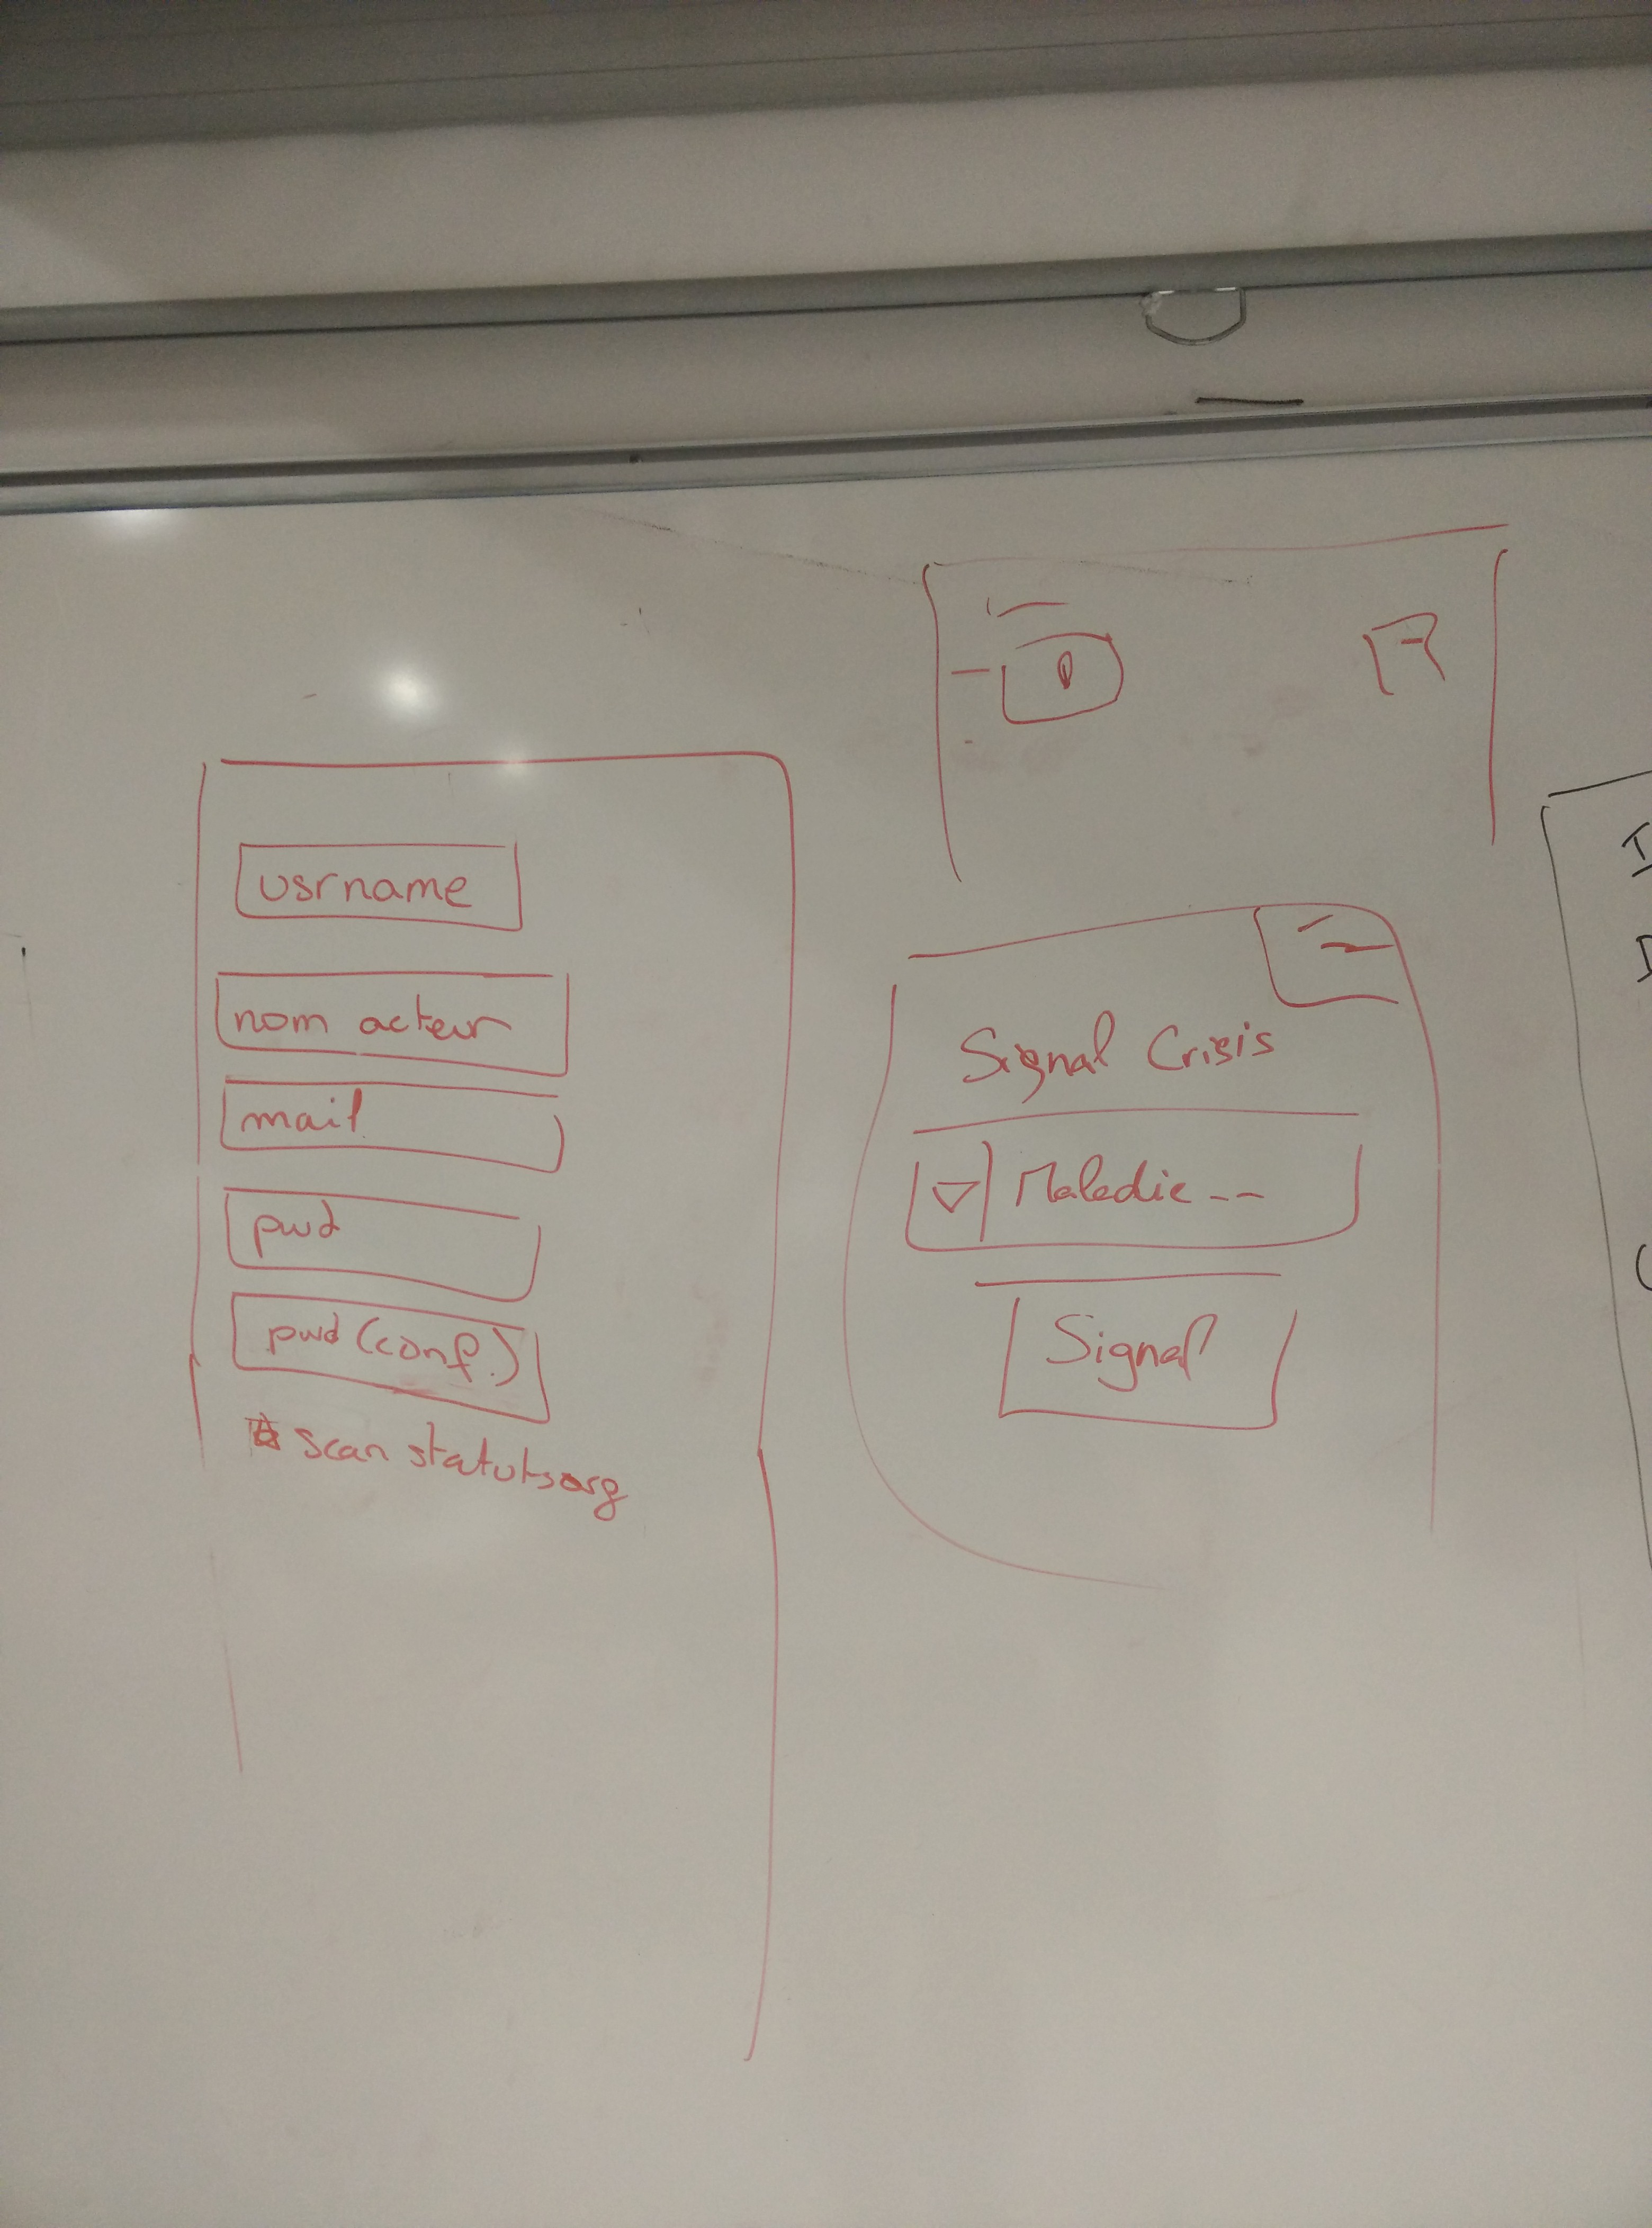 usrname
nom acteur
mail
pwd
pwd (conf.)
scan statuts org
Signal Crisis
Maladie --
Signal
I